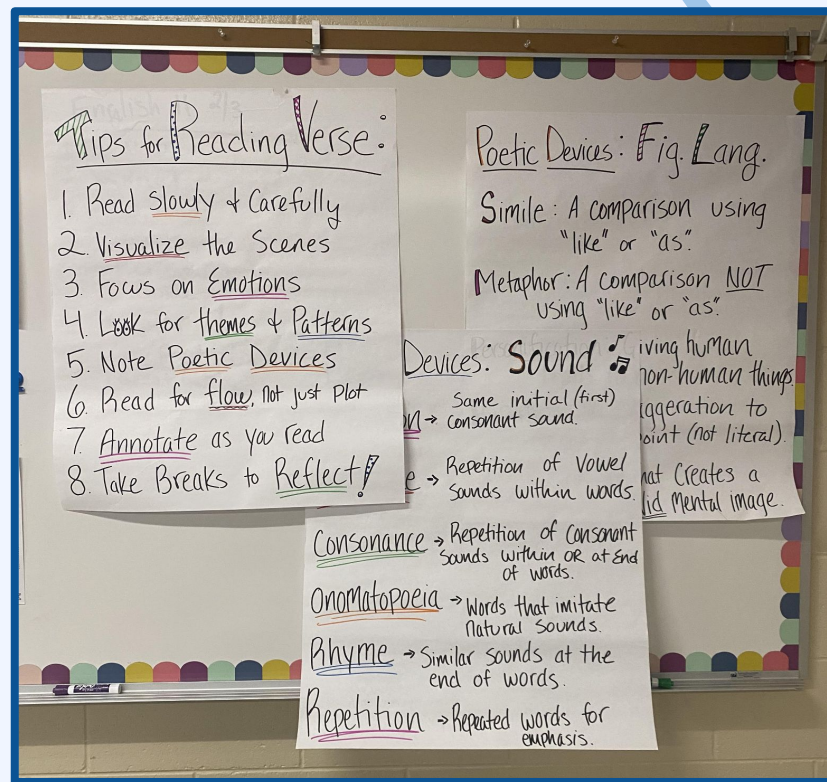 Tips for Reading Verse:
1. Read Slowly & Carefully
2. Visualize the Scenes
3. Focus on Emotions
4. Look for themes & Patterns
5. Note Poetic Devices
6. Read for flow, not just Plot
7. Annotate as you read
8. Take Breaks to Reflect!
Poetic Devices: Fig. Lang.
Simile: A comparison using
"like" or "as".
Metaphor: A comparison NOT
using "like" or "as".
iving human
non-human things.
aggeration to
oint (not literal).
hat Creates a
id Mental image.
Devices: Sound
on → Same initial (first)
consonant sound.
e → Repetition of Vowel
Sounds within words.
Consonance → Repetition of Consonant
Sounds within OR at End
of words.
Onomatopoeia → Words that imitate
natural Sounds.
Rhyme → Similar sounds at the
end of words.
Repetition → Repeated words for
emphasis.